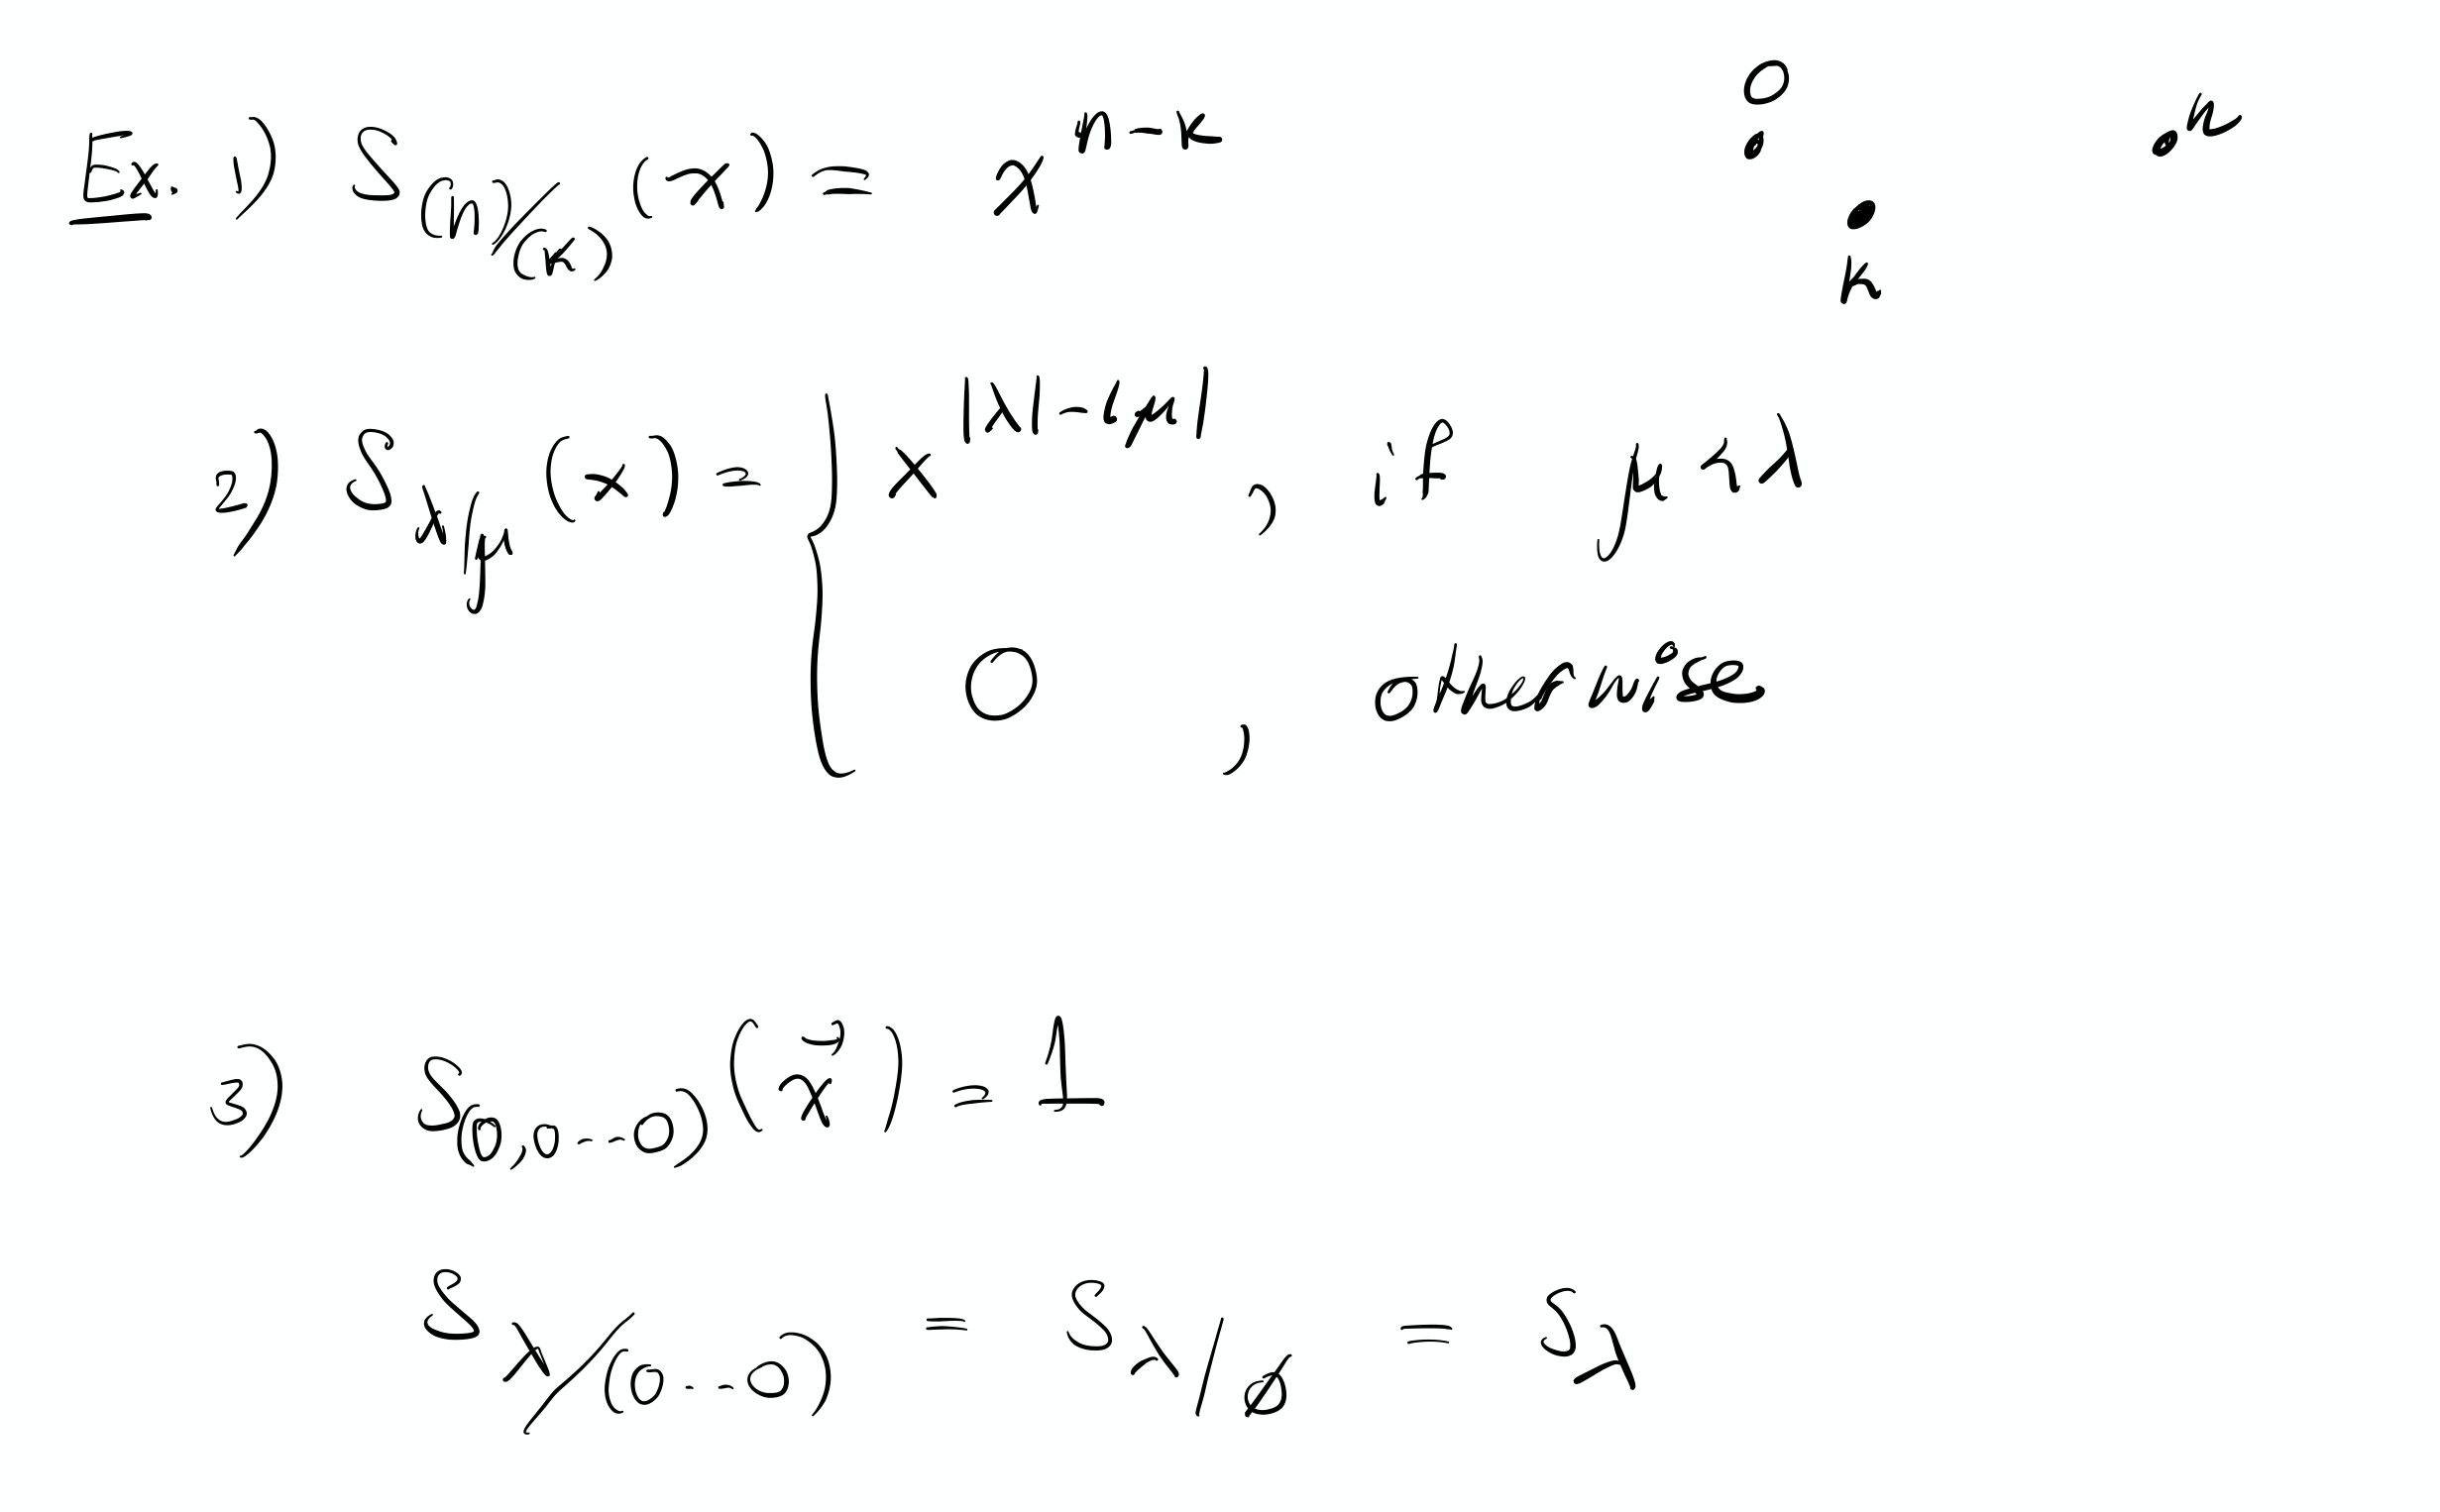 Ex. 1) S_{(n)/(k)} (x) = x^{n-k} 0 n
k
2) S_{λ/μ} (x) = { x^{|λ|-|μ|} , if μ ≺ λ
0 , otherwise
3) S_{(0,0...0)} (x⃗) = 1
S_{λ/(0...0)} = S_{λ/∅} = S_λ